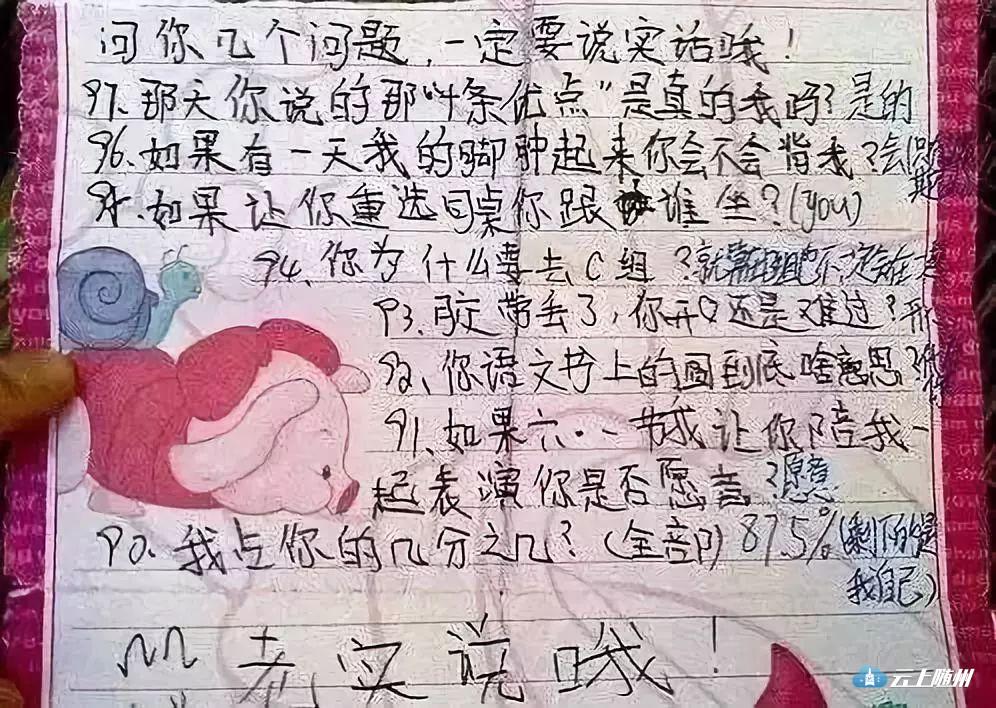 问你几个问题，一定要说实话哦！
97.那天你说的那"4条优点"是真的我吗？是的
96.如果有一天我的脚肿起来你会不会背我？会
95.如果让你重选同桌你跟谁坐？(you)
94.你为什么要去C组？就算在C组也不一定坐在
93.胶带丢了，你开心还是难过？
92、你语文书上的圆到底啥意思？
91.如果六·一节我让你陪我一
起表演你是否愿意？愿意
90.我占你的几分之几？(全部) 87.5%(剩下的是
我自己)
老实说哦！
云上随州